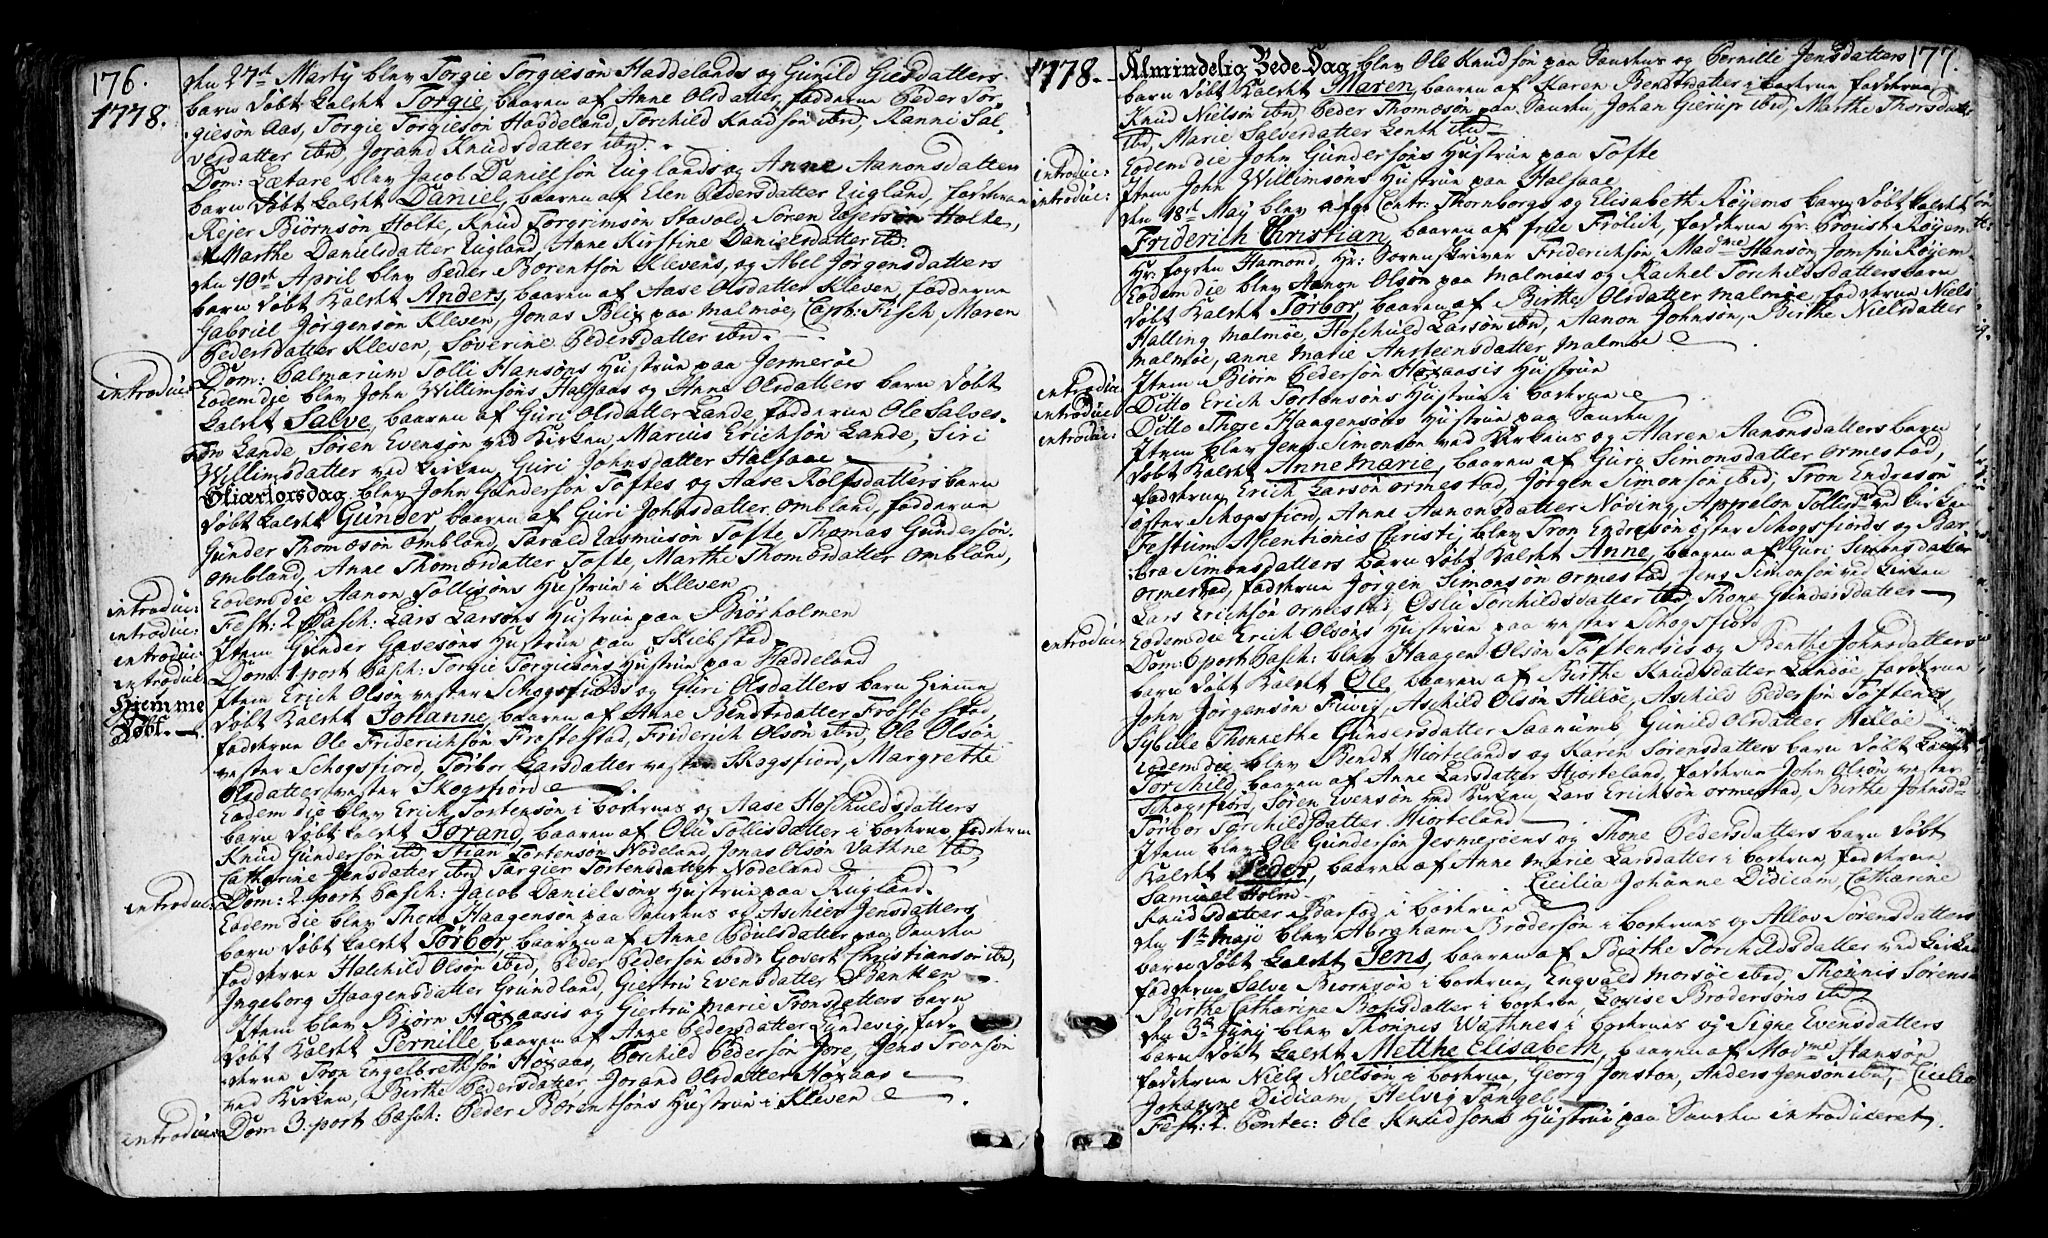 176.
1778.
den 27de Martij blev Torgie Torgiesøn Haddelands og Gunild Giesdatters
barn døbt kaldet Torgie, baaren af Anne Olsdatter, fadderne Peder Tor-
giesøn Aas, Torgie Torgiesøn Haddeland, Torchild Knudsøn ibid, Ranni Sal-
vesdatter ibid, Jorand Knudsdatter ibid.
Dom: Lætare blev Jacob Danielsøn Euglands og Anne Aanonsdatters
barn døbt kaldet Daniel, baaren af Elen Pedersdatter Eugland, fadderne
Rejer Biørnsøn Holte, Knud Torgrimsøn Stavold, Søren Rejersøn Holte,
Marthe Danielsdatter Eugland, Anne Kirstine Danielsdatter ibd.
den 10de April blev Peder Børentsøn Klevens, og Abel Jørgensdatters
barn døbt kaldet Anders, baaren af Aase Olsdatter Kleven, fadderne
Gabriel Jørgensøn Kleven, Jonas Blix paa Malmøe, Capt: Fisch, Maren
Pedersdatter Kleven, Søverine Pedersdatter ibd.
introduc: Dom: Palmarum Tolli Hansøns Hustrue paa Jermerøe
Eodem die blev John Willimsøns Halsaas og Anne Olsdatters barn døbt
kaldet Salve, baaren af Guri Olsdatter Lande, fadderne Ole Salves-
Lande, Søren Evensøn ved Kirken, Marcus Erichsøn Lande, Siri
Willimsdatter ved Kirken, Guri Johnsdatter Halsaae
Skiærtorsdag blev John Gundersøn Toftes og Aase Rolfsdatters barn
døbt kaldet Gunder, baaren af Guri Johnsdatter Ombland, fadderne
Gunder Thomæsøn Ombland, Tarald Rasmusøn Tofte, Thomas Gundersøn
Ombland, Anne Thomæsdatter Tofte, Marthe Thomæsdatter Ombland,
introduc: Eodem die Aanon Tollisøns Hustrue i Kleven
introduc: Fest: 2 Pasch: Lars Larsøns Hustrue paa Biørholmen
introduc: Item Gunder Gasesøns Hustrue paa Skiebstad
introduc: Dom: 1 port Pasch: Torgie Torgiesøns Hustrue paa Haddeland
Hjemme Døbt. Item Erich Olsøn vester Schogsfiords og Guri Olsdatters barn hiemme
døbt kaldet Johanne, baaren af Anne Bendtsdatter Frostestad,
fadderne Ole Friderichsøn Frostestad, Friderich Olsøn ibid, Ole Olsøn
vester Schogsfiord, Torbor Larsdatter vester Skogsfiord, Margrethe
Olsdatter vester Skogsfiord
Eodem die blev Erich Tortensøn i boernes og Aase Hoschuldsdatters
barn døbt kaldet Jorand, baaren af Olu Tollisdatter i boerne, fadderne
Knud Gundersøn ibd, Stian Tortensøn Nodeland, Jonas Olsøn Vathne ibd,
Catharine Jensdatter ibd, Targier Tortensdatter Nodeland
introduc: Dom: 2 port Pasch: Jacob Danielsøns Hustrue paa Eugland.
Eodem die blev Thore Haagensøn paa Sanskens og Aschier Jensdatters
barn døbt kaldet Torbor, baaren af Anne Poulsdatter paa Sansken
fadderne Halchild Olsøn ibid, Peder Pedersøn ibid, Govert Christiansøn ibd,
Ingeborg Haagensdatter Grundland, Giertru Evensdatter Banken
Item blev Biørn Høxaasis og Giertru Marie Tronsdatters barn
døbt kaldet Pernille, baaren af Anne Pedersdatter Lundevig, fad-
derne Tron Engelbrethsøn Høxaas, Torchild Pedersøn Jore, Jens Tronsøn
ved Kirken, Birthe Pedersdatter, Jorand Olsdatter Høxaas
introduc: Dom 3 port Pasch: Peder Børentsøns Hustrue i Kleven
177.
1778.
Almindelig Bede-Dag blev Ole Knudsøn paa Sanskens og Pernille Jensdatters
barn døbt kaldet Maren, baaren af Karen Bendtsdatter i boerne, fadderne
Knud Nielsøn ibd, Peder Thomæsøn paa Sansken, Johan Gierup ibd, Marthe Thorsdatter
ibd, Marie Salvesdatter Lenth ibd
introduc: Eodem die John Gundersøns Hustrue paa Tofte
introduc: Item John Willimsøns Hustrue paa Halsaae
den 18de Maij blev afg: Contr: Thornborgs og Elisabeth Røyems barn døbt kaldet
Friderich Christian, baaren af frue Frolich, fadderne Hr: Provist Røyem
Hr: fogden Hamond, Hr: Sorenskriver Friderichsøn, Madme Hansøn, Jomfru Røyem.
Eodem die blev Aanon Olsøn paa Malmøes og Rachel Torchildsdatters barn
døbt kaldet Torbor, baaren af Birthe Olsdatter Malmøe, fadderne Niels
Halling Malmøe, Hoschuld Larsøn ibd, Aanon Johnsøn, Birthe Nielsdatter
Malmøe, Anne Marie Ansteensdatter Malmøe
introduc: Item Biørn Pedersøn Høxaasis Hustrue
introduc: Ditto Erich Tortensøns Hustrue i boerne
introduc: Ditto Thore Haagensøns Hustrue paa Sansken
Item blev Jens Simonsøn ved Kirkens og Maren Aanonsdatters barn
døbt kaldet Anne Marie, baaren af Guri Simonsdatter Ormestad,
fadderne Erich Larsøn Ormestad, Jørgen Simonsøn ibid, Tron Endresøn
øster Schogsfiord, Anne Aanonsdatter Nøding, Appelon Tollisd: ved Kirken
Festum Ascentionis Christi blev Tron Endresøn øster Schogsfiords og Bar-
bra Simonsdatters barn døbt kaldet Anne, baaren af Guri Simonsdatter
Ormestad, fadderne Jørgen Simonsøn Ormestad, Jens Simonsøn ved Kirken
Lars Erichsøn Ormestad, Oslu Torchildsdatter ibd, Thone Gundersdatter
introduc: Eodem die Erich Olsøns Hustrue paa vester Schogsfiord
Dom: 6 port Pasch: blev Haagen Olsøn Toftenesis og Benthe Johnsdatters
barn døbt kaldet Ole, baaren af Birthe Knudsdatter Landøe, fadderne
John Jørgensøn Fuvig, Aschild Olsøn Hilløe, Aschild Pedersøn Toftenes
Sybille Thonnethe Gundersdatter Saanumb, Gunild Olsdatter Hilløe
Eodem die blev Bendt Hiortelands og Karen Sørensdatters barn døbt kaldet
Torchild, baaren af Anne Larsdatter Hiorteland, fadderne John Olsøn vester
Schogsfiord, Søren Evensøn ved Kirken, Lars Erichsøn Ormestad, Birthe Johnsd:
Torbor Torchildsdatter Hiorteland
Item blev Ole Gundersøn Jesmerøens og Thone Pedersdatters barn døbt
kaldet Peder, baaren af Anne Marie Larsdatter i boerne, fadderne
Samuel Holm Cicilia Johanne Didicam, Catharine
Knudsdatter Barfod i boerne
den 1te Maji blev Abraham Brødersøn i boernes og Allov Sørensdatters
barn døbt kaldet Jens, baaren af Birthe Torchildsdatter ved Kirken
fadderne Salve Biørnsøn i boerne, Engvald Morsøe ibid, Thønnis Sørens
Birthe Catharine Boisdatter i boerne Lovise Brodersøns ibd
den 3de Junij blev Thønnis Wathnes i boernes og Signe Evensdatters
barn døbt kaldet Metthe Elisabeth, baaren af Madme Hansøn
fadderne Niels Nielsøn i boerne, Georg Jonston, Anders Jensøn ibd, Cicilia
Johanne Didicam, Helvig Tangel
Fest: 1. Pentec: Ole Knudsøns Hustrue paa Sansken introduceret.